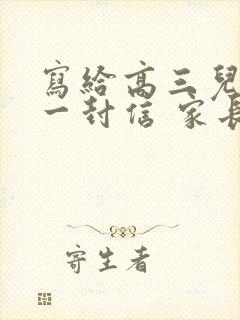 寫給高三兒
一封信 家長
寄生者